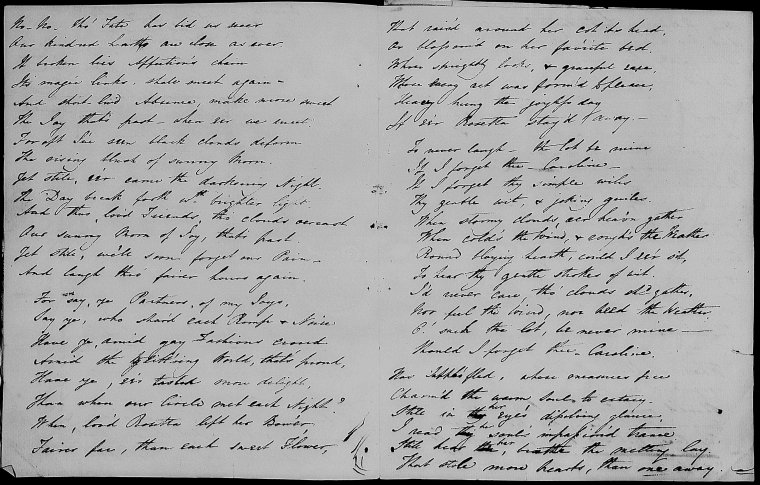 No. No. tho' Fate has bid us sever
Our kindred hearts are close as ever.
If broken his Affection's chain
Its magic links, shall meet again—
And short liv'd Absence, make more sweet
The Joy that's past— when e'er we meet.
For oft I've seen black clouds deform
The rising blush of sunny Morn.
Yet still, e'er came the darkening Night.
The Day break forth wth brighter light.
And thus, lov'd Friends, tho' clouds overcast
Our sunny Morn of Joy, that's past.
Yet still, we'll soon forget our Pain—
And laugh thro' fairer hours again.
For say, ye Partners, of my Joys,
Say ye, who shar'd each Romp & Noise
Have ye, amid gay Fashions crowd
Amid the glittering World, that's proud,
Have ye, e'er tasted more delight,
Than when our Circle met each Night?
When, lov'd Rosetta left her Bower,
Fairer far, than each sweet Flower,
That rais'd around her cot its head,
Or blossom'd on her fav'rite bed.
Whose sprightly look, & graceful ease,
Whose every act was form'd to please,
Heavy hung the joyful day
If e'er Rosetta stay'd away.—
To never laugh— the lot be mine
If I forget thee Caroline—
If I forget thy simple wiles
Thy gentle wit, & joking smiles.
When stormy clouds o'er heav'n gather
When cold's the Wind, & rough's the Weather
Round blazing hearth, could I e'er sit,
To hear thy gentle strokes of wit.
I'd never care, tho' clouds shd gather,
Nor feel the Wind, nor heed the Weather
O! such the lot, be never mine—
Would I forget thee— Caroline,
Nor whose measures free
Charm'd the warm soul to extacy.
Still in her eyes dissolving glance,
I read her soul's impassion'd trance
Still hear her breathe the melting lay.
That stole more hearts, than one away.